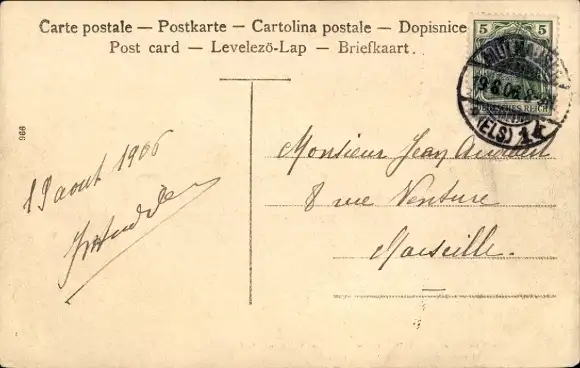 Carte postale — Postkarte — Cartolina postale — Dopisnice
Post card — Levelező-Lap — Briefkaart.
5 5
DEUTSCHES REICH
MÜLHAUSEN
19.8.06
(ELS) 1 k
966
19 aout 1906
Monsieur Jean
8 rue Venture
Marseille.